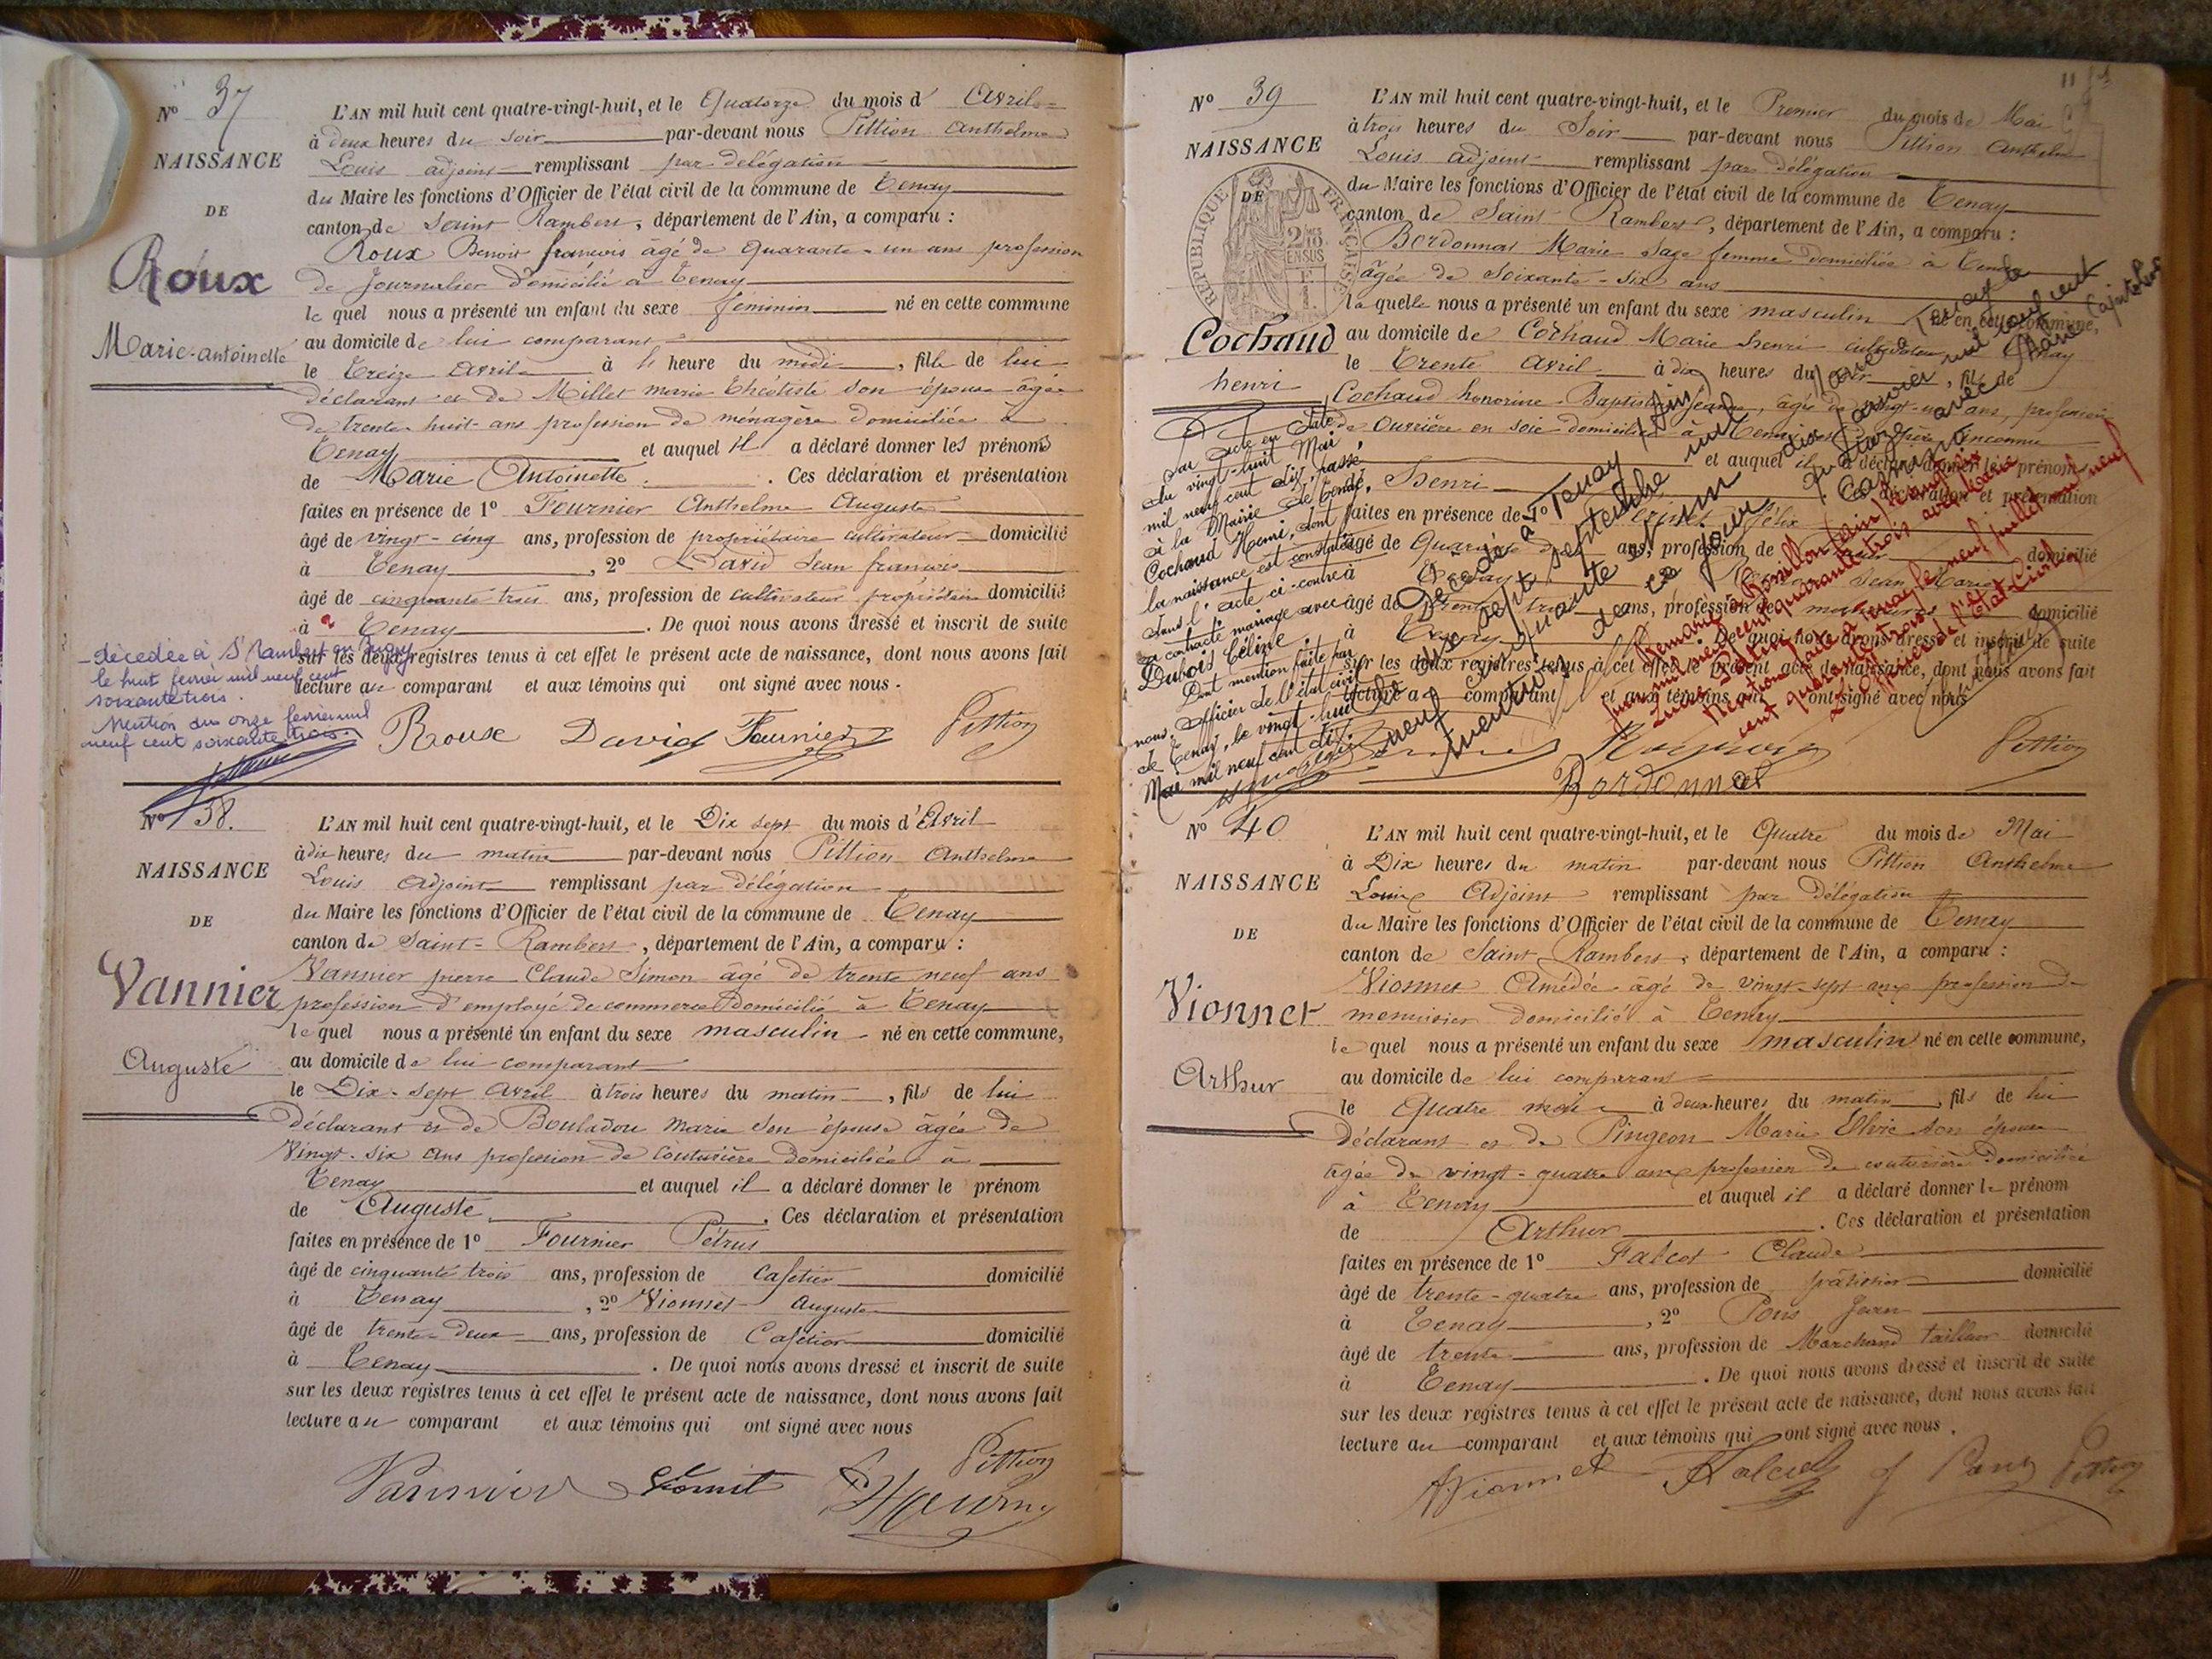 N° 37
NAISSANCE
DE
Roux
Marie-antoinette
L'AN mil huit cent quatre-vingt-huit, et le Quatorze du mois d' Avril
à deux heures du soir par-devant nous Pittion Anthelme
Louis adjoint remplissant par délégation
du Maire les fonctions d'Officier de l'état civil de la commune de Tenay
canton de Saint Rambert, département de l'Ain, a comparu :
Roux Benoit francois âgé de quarante-un ans profession
de Journalier domicilié à Tenay
le quel nous a présenté un enfant du sexe feminin né en cette commune
au domicile de lui comparant
le Treize Avril à heure du midi, fille de lui
déclarant et de Millet marie son épouse âgée
de trente-huit ans profession de ménagère domiciliée à
Tenay et auquel il a déclaré donner les prénoms
de Marie Antoinette. Ces déclaration et présentation
faites en présence de 1° Fournier Anthelme Auguste
âgé de vingt-cinq ans, profession de propriétaire cultivateur domicilié
à Tenay, 2° David Jean francois
âgé de cinquante trois ans, profession de cultivateur propriétaire domicilié
à Tenay. De quoi nous avons dressé et inscrit de suite
sur les deux registres tenus à cet effet le présent acte de naissance, dont nous avons fait
lecture au comparant et aux témoins qui ont signé avec nous.
Roux David Fournier Pittion
décédée à St Rambert en Bugey
le huit fevrier mil neuf cent
soixante trois.
Mention du onze fevrier mil
neuf cent soixante trois.
N° 38.
NAISSANCE
DE
Vannier
Auguste
L'AN mil huit cent quatre-vingt-huit, et le Dix sept du mois d'Avril
à dix heures du matin par-devant nous Pittion Anthelme
Louis Adjoint remplissant par délégation
du Maire les fonctions d'Officier de l'état civil de la commune de Tenay
canton de Saint-Rambert, département de l'Ain, a comparu :
Vannier pierre Claude Simon âgé de trente neuf ans
profession d'employé de commerce domicilié à Tenay
le quel nous a présenté un enfant du sexe masculin né en cette commune,
au domicile de lui comparant
le Dix-sept Avril à trois heures du matin, fils de lui
déclarant et de Bouladou Marie son épouse âgée de
Vingt-six ans profession de couturière domiciliée à
Tenay et auquel il a déclaré donner le prénom
de Auguste. Ces déclaration et présentation
faites en présence de 1° Fournier Pétrus
âgé de cinquante trois ans, profession de Cafetier domicilié
à Tenay, 2° Vionnet Auguste
âgé de trente-deux ans, profession de Cafetier domicilié
à Tenay. De quoi nous avons dressé et inscrit de suite
sur les deux registres tenus à cet effet le présent acte de naissance, dont nous avons fait
lecture au comparant et aux témoins qui ont signé avec nous
Vannier Pittion
N° 39
NAISSANCE
DE
RÉPUBLIQUE FRANÇAISE
Cochaud
henri
L'AN mil huit cent quatre-vingt-huit, et le Premier du mois de Mai
à trois heures du Soir par-devant nous Pittion Anthelme
Louis adjoint remplissant par délégation
du Maire les fonctions d'Officier de l'état civil de la commune de Tenay
canton de Saint Rambert, département de l'Ain, a comparu :
Bordonnat Marie Sage femme domiciliée à Tenay
âgée de Soixante-six ans
la quelle nous a présenté un enfant du sexe masculin né en cette commune,
au domicile de Cochaud Marie henri cultivateur à Tenay
le Trente Avril à dix heures du, fils de
Cochaud honorine Baptistine Jeanne, âgée de vingt-un ans, profession
de ouvrière en soie domiciliée à Tenay père inconnu
et auquel il a déclaré donner le prénom
de Henri déclaration et présentation
faites en présence de 1° Félix
âgé de Quarante ans, profession de domicilié
à Tenay Jean Marie
âgé de trente trois ans, profession de domicilié
à Tenay De quoi nous avons dressé et inscrit de suite
sur les deux registres tenus à cet effet le présent acte de naissance, dont nous avons fait
lecture a comparant et aux témoins qui ont signé avec nous
Bordonnat Pittion
Par acte en date
du vingt-huit Mai
mil neuf cent dix, passé
à la Mairie de Tenay,
Cochaud Henri, dont
la naissance est constatée
dans l'acte ci-contre
a contracté mariage avec
Dubois Céline.
Dont mention faite par
nous, officier de l'état civil
de Tenay, le vingt-huit
Mai mil neuf cent dix.
Décédé à Tenay (Ain)
le dix sept septembre mil
neuf cent cinquante et un
Mention de ce jour
Remarié à Rossillon (Ain)
mil neuf cent quarante trois avec
Mention faite à Tenay le neuf juillet mil neuf
cent quarante trois
L'Officier de l'Etat Civil
N° 40
NAISSANCE
DE
Vionnet
Arthur
L'AN mil huit cent quatre-vingt-huit, et le Quatre du mois de Mai
à Dix heures du matin par-devant nous Pittion Anthelme
Louis Adjoint remplissant par délégation
du Maire les fonctions d'Officier de l'état civil de la commune de Tenay
canton de Saint Rambert, département de l'Ain, a comparu :
Vionnet Amédée âgé de vingt-sept ans profession de
menuisier domicilié à Tenay
le quel nous a présenté un enfant du sexe masculin né en cette commune,
au domicile de lui comparant
le Quatre mai à deux heures du matin, fils de lui
déclarant et de Pingeon Marie son épouse
agée de vingt-quatre ans profession de couturière domiciliée
à Tenay et auquel il a déclaré donner le prénom
de Arthur. Ces déclaration et présentation
faites en présence de 1° Falcot Claude
âgé de trente-quatre ans, profession de pâtissier domicilié
à Tenay, 2° Pons Jean
âgé de trente ans, profession de Marchand tailleur domicilié
à Tenay. De quoi nous avons dressé et inscrit de suite
sur les deux registres tenus à cet effet le présent acte de naissance, dont nous avons fait
lecture au comparant et aux témoins qui ont signé avec nous.
A Vionnet Falcot J Pons Pittion